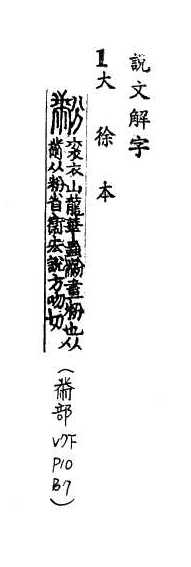 説文解字
1大徐本
黺 袞衣山龍華蟲黺畫粉也从
黹从粉省衛宏說方吻切
(黹部 V7下 P10 B7)